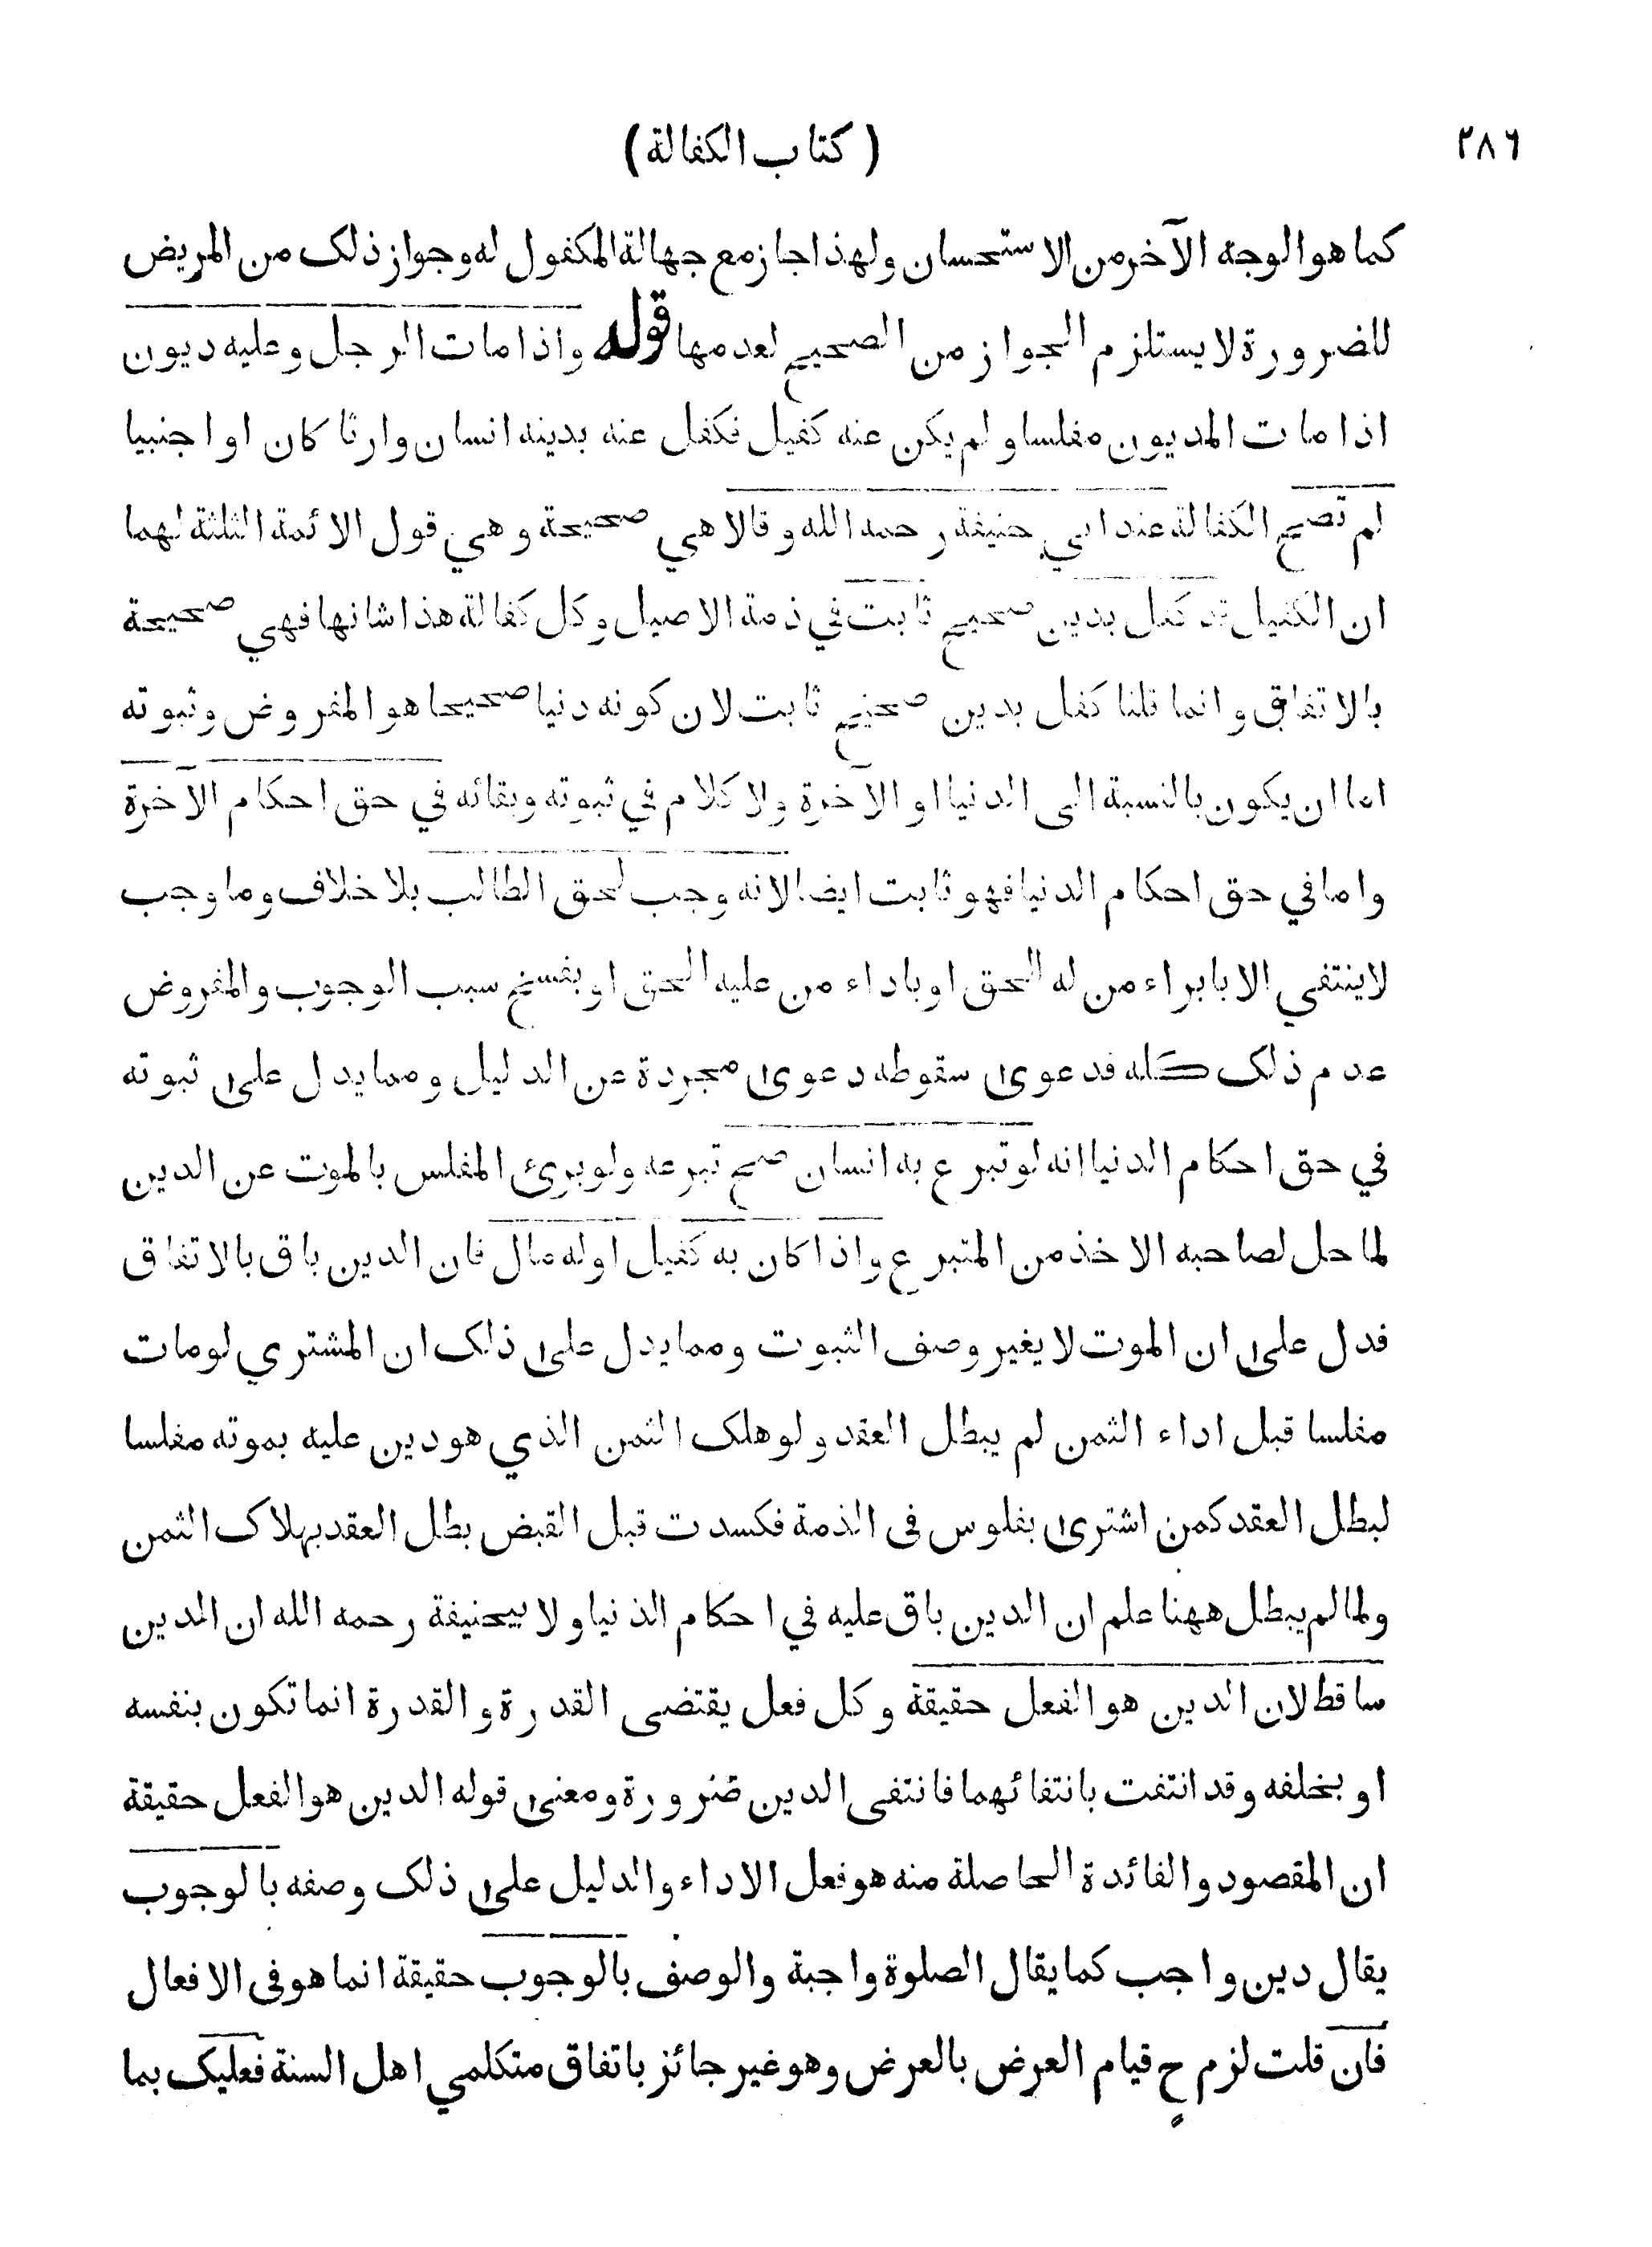 ٢٨٦
( كتاب الكفالة )
كما هو الوجه الآخر من الاستحسان ولهذا جاز مع جهالة المكفول له وجواز ذلك من المريض
للضرورة لا يستلزم الجواز من الصحيح لعدمها قوله واذا مات الرجل وعليه ديون
اذا مات المديون مفلسا ولم يكن عنه كفيل فكفل عنه بدينه انسان وارثا كان او اجنبيا
لم تصح الكفالة عند ابي حنيفة رحمه الله وقالا هي صحيحة وهي قول الائمة الثلثة لهما
ان الكفيل قد كفل بدين صحيح ثابت في ذمة الاصيل وكل كفالة هذا شانها فهي صحيحة
بالاتفاق وانما قلنا كفل بدين صحيح ثابت لان كونه دنيا صحيحا هو المفروض وثبوته
اما ان يكون بالنسبة الى الدنيا او الآخرة ولا كلام في ثبوته وبقائه في حق احكام الآخرة
واما في حق احكام الدنيا فهو ثابت ايضا لانه وجب لحق الطالب بلا خلاف وما وجب
لا ينتفي الا بابراء من له الحق او باداء من عليه الحق او بفسخ سبب الوجوب والمفروض
عدم ذلك كله فدعوى سقوطه دعوى مجردة عن الدليل ومما يدل على ثبوته
في حق احكام الدنيا انه لو تبرع به انسان صح تبرعه ولو برئ المفلس بالموت عن الدين
لما حل لصاحبه الاخذ من المتبرع واذا كان به كفيل او له مال فان الدين باق بالاتفاق
فدل على ان الموت لا يغير وصف الثبوت ومما يدل على ذلك ان المشتري لو مات
مفلسا قبل اداء الثمن لم يبطل العقد ولو هلك الثمن الذي هو دين عليه بموته مفلسا
لبطل العقد كمن اشترى بفلوس في الذمة فكسدت قبل القبض بطل العقد بهلاك الثمن
ولما لم يبطل ههنا علم ان الدين باق عليه في احكام الدنيا ولابيحنيفة رحمه الله ان الدين
ساقط لان الدين هو الفعل حقيقة وكل فعل يقتضى القدرة والقدرة انما تكون بنفسه
او بخلفه وقد انتفت بانتفائهما فانتفى الدين ضرورة ومعنى قوله الدين هو الفعل حقيقة
ان المقصود والفائدة الحاصلة منه هو فعل الاداء والدليل على ذلك وصفه بالوجوب
يقال دين واجب كما يقال الصلوة واجبة والوصف بالوجوب حقيقة انما هو في الافعال
فان قلت لزم ح قيام العرض بالعرض وهو غير جائز باتفاق متكلمي اهل السنة فعليك بما